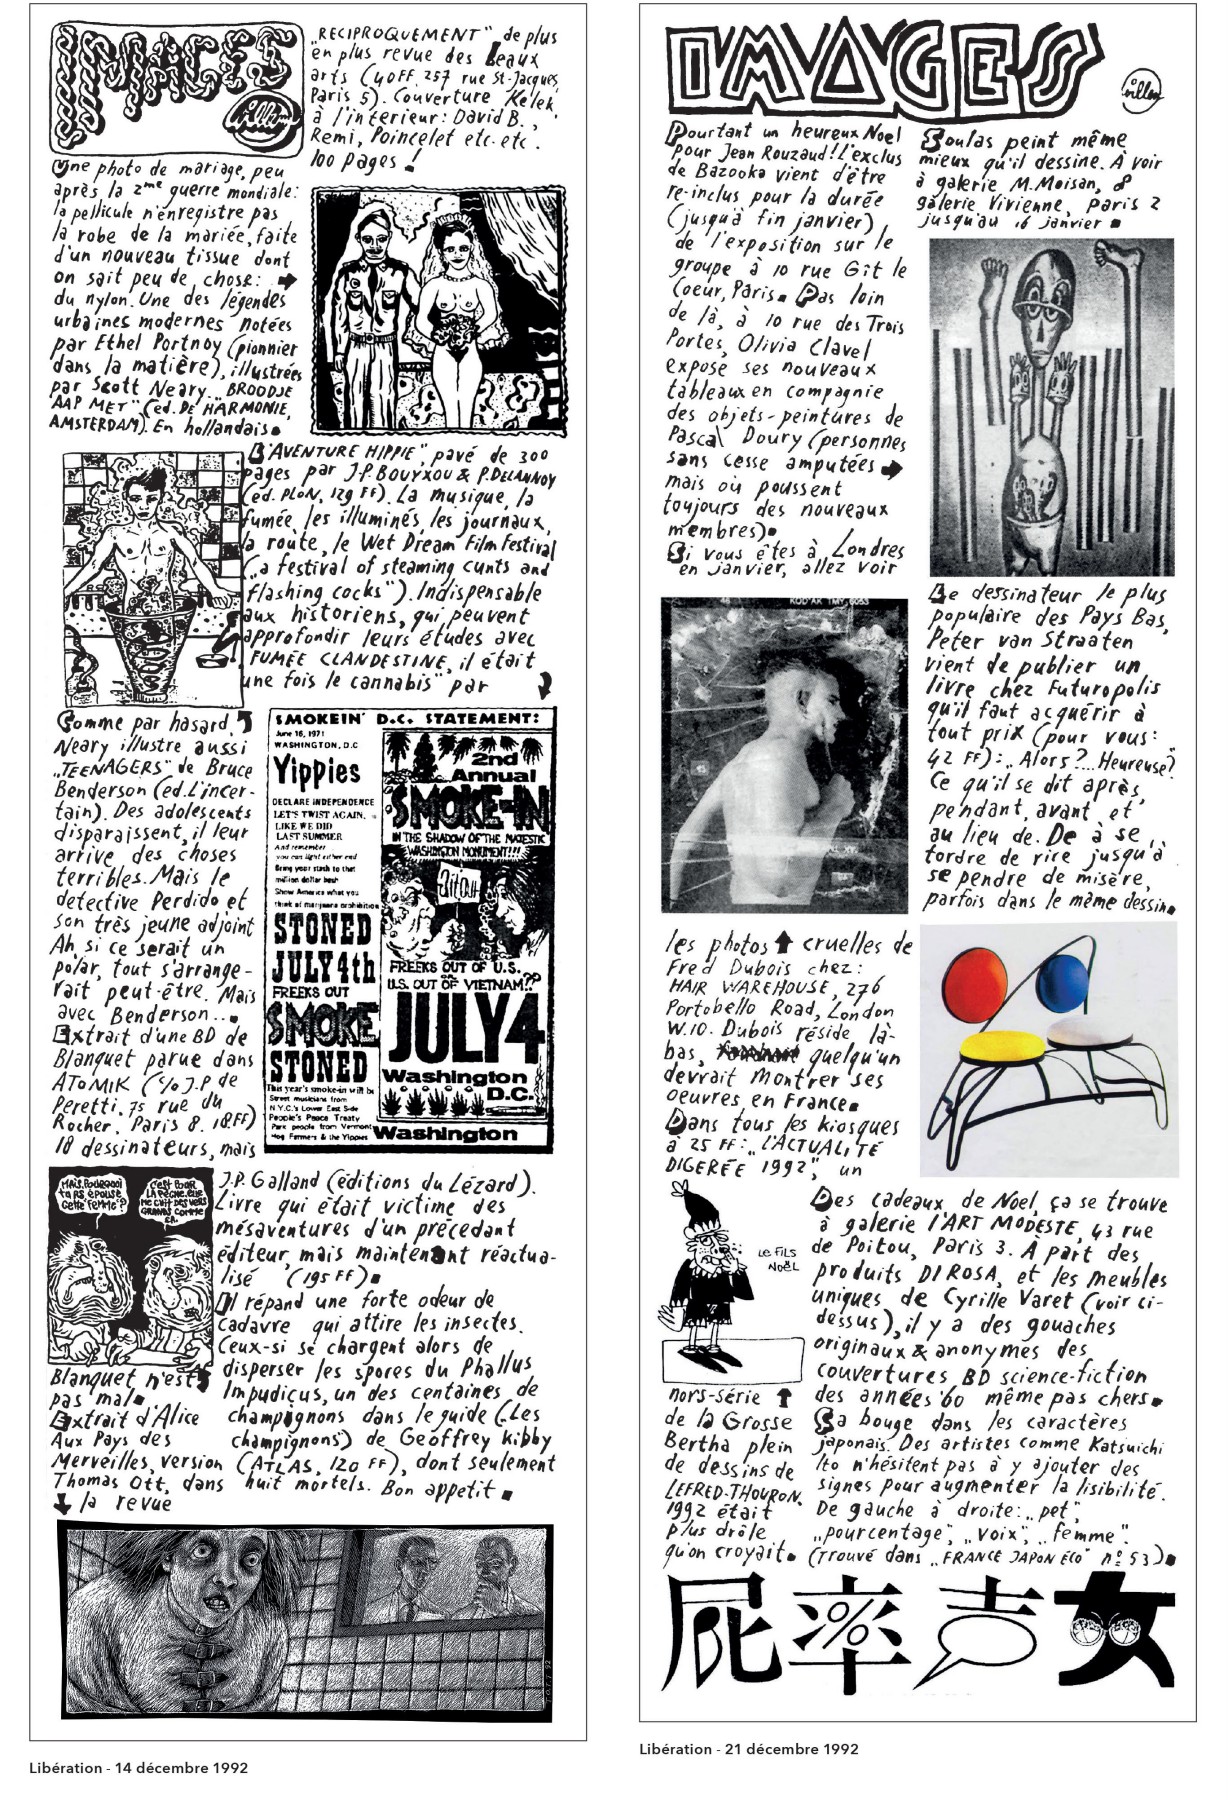 IMAGES
Willem
Une photo de mariage, peu
après la 2me guerre mondiale:
la pellicule n'enregistre pas
la robe de la mariée, faite
d'un nouveau tissue dont
on sait peu de chose:
du nylon. Une des légendes
urbaines modernes notées
par Ethel Portnoy (pionnier
dans la matière), illustrées
par Scott Neary. „BROODJE
AAP MET" (ed. DE HARMONIE,
AMSTERDAM). En hollandais.
„L'AVENTURE HIPPIE", pavé de 300
pages par J.P. BOUYXOU & P. DELANNOY
(éd. PLON, 129 FF). La musique, la
fumée, les illuminés, les journaux,
la route, le Wet Dream Film Festival
(„a festival of steaming cunts and
flashing cocks"). Indispensable
aux historiens, qui peuvent
approfondir leurs études avec
„FUMÉE CLANDESTINE, il était
une fois le cannabis" par
J.P. Galland (éditions du Lézard).
Livre qui était victime des
mésaventures d'un précedant
éditeur, mais maintenant réactua-
lisé (195 FF).
SMOKEIN' D.C. STATEMENT:
June 16, 1971
WASHINGTON, D.C
Yippies
DECLARE INDEPENDENCE
LET'S TWIST AGAIN,
LIKE WE DID
LAST SUMMER
And remember
you can light either end
Bring your stash to that
million dollar bash
Show America what you
think of marijuana prohibition
STONED
JULY 4th
FREEKS OUT
SMOKE
STONED
This year's smoke-in will be
Street musicians from
N.Y.C.'s Lower East Side
People's Peace Treaty
Park people from Vermont
Hog Farmers & the Yippies
2nd
Annual
SMOKE-IN
IN THE SHADOW OF THE MAJESTIC
WASHINGTON MONUMENT!!!
FREEKS OUT OF U.S.
U.S. OUT OF VIETNAM??
JULY 4
Washington
D.C.
Washington
Comme par hasard,
Neary illustre aussi
„TEENAGERS" de Bruce
Benderson (ed. L'incer-
tain). Des adolescents
disparaissent, il leur
arrive des choses
terribles. Mais le
detective Perdido et
son très jeune adjoint
Ah, si ce serait un
polar, tout s'arrange-
rait peut-être. Mais
avec Benderson...
Extrait d'une BD de
Blanquet parue dans
ATOMIK (c/o J.P de
Peretti, 75 rue du
Rocher, Paris 8. 18FF)
18 dessinateurs, mais
MAIS, POURQUOI
TU AS ÉPOUSÉ
CETTE FEMME?
C'EST POUR
LA PÊCHE, ELLE
ME CHIT DES VERS
GRANDS COMME
ÇA.
Blanquet n'est
pas mal.
Extrait d'Alice
Aux Pays des
Merveilles, version
Thomas Ott, dans
la revue
„RECIPROQUEMENT" de plus
en plus revue des beaux
arts (40FF, 257 rue St-Jacques,
Paris 5). Couverture Kelek,
à l'interieur: David B.,
Remi, Poincelet etc. etc.
100 pages!
Il répand une forte odeur de
cadavre qui attire les insectes.
Ceux-si se chargent alors de
disperser les spores du Phallus
Impudicus, un des centaines de
champignons dans le guide („Les
champignons") de Geoffrey Kibby
(ATLAS, 120 FF), dont seulement
huit mortels. Bon appetit.
T.OTT 92
Libération - 14 décembre 1992
IMAGES
Willem
Pourtant un heureux Noel
pour Jean Rouzaud! L'exclus
de Bazooka vient d'être
re-inclus pour la durée
(jusqu'à fin janvier)
de l'exposition sur le
groupe à 10 rue Gît le
Coeur, Paris. Pas loin
de là, à 10 rue des Trois
Portes, Olivia Clavel
expose ses nouveaux
tableaux en compagnie
des objets-peintures de
Pascal Doury (personnes
sans cesse amputées
mais où poussent
toujours des nouveaux
membres).
Si vous êtes à Londres
en janvier, allez voir
les photos cruelles de
Fred Dubois chez:
HAIR WAREHOUSE, 276
Portobello Road, London
W.10. Dubois réside là-
bas, quelqu'un
devrait montrer ses
oeuvres en France.
Dans tous les kiosques
à 25 FF: „L'ACTUALITÉ
DIGERÉE 1992", un
LE FILS
NOËL
hors-série
de la Grosse
Bertha plein
de dessins de
LEFRED-THOURON.
1992 était
plus drôle
qu'on croyait.
Soulas peint même
mieux qu'il dessine. À voir
à galerie M. Moisan, 8
galerie Vivienne, Paris 2
jusqu'au 16 janvier
Le dessinateur le plus
populaire des Pays Bas,
Peter van Straaten
vient de publier un
livre chez Futuropolis
qu'il faut acquérir à
tout prix (pour vous:
42 FF): „Alors?... Heureuse?"
Ce qu'il se dit après,
pendant, avant, et
au lieu de. De à se
tordre de rire jusqu'à
se pendre de misère,
parfois dans le même dessin.
Des cadeaux de Noel, ça se trouve
à galerie l'ART MODESTE, 43 rue
de Poitou, Paris 3. À part des
produits DI ROSA, et les meubles
uniques de Cyrille Varet (voir ci-
dessus), il y a des gouaches
originaux & anonymes des
couvertures BD science-fiction
des années '60 même pas chers.
Ça bouge dans les caractères
japonais. Des artistes comme Katsuichi
Ito n'hésitent pas à y ajouter des
signes pour augmenter la lisibilité.
De gauche à droite: „pet",
„pourcentage", „voix", „femme".
(Trouvé dans „FRANCE JAPON ÉCO" nº 53).
屁 率 声 女
Libération - 21 décembre 1992